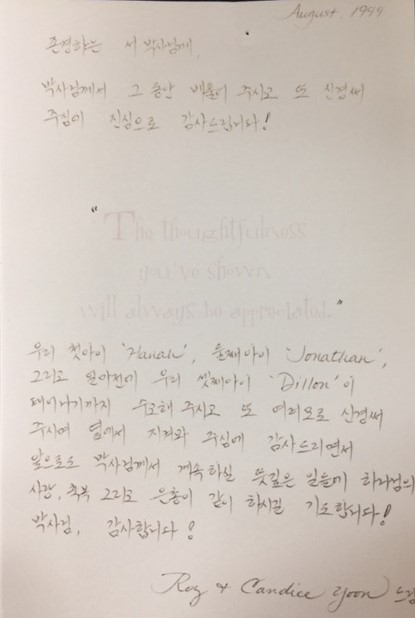 August, 1999
존경하는 서 박사님께,
박사님께서 그 동안 베풀어 주시고 또 신경써
주심에 진심으로 감사드립니다!
"The thoughtfulness
you've shown
will always be appreciated."
우리 첫아이 'Hanah', 둘째아이 'Jonathan',
그리고 얼마전에 우리 셋째아이 'Dillon'이
태어나기까지 수고해 주시고 또 여러모로 신경써
주시며 옆에서 지켜봐 주심에 감사드리면서
앞으로도 박사님께서 계속하실 뜻깊은 일들에 하나님의
사랑, 축복 그리고 은총이 같이 하시길 기도합니다!
박사님, 감사합니다!
Roy & Candice Yoon 드림